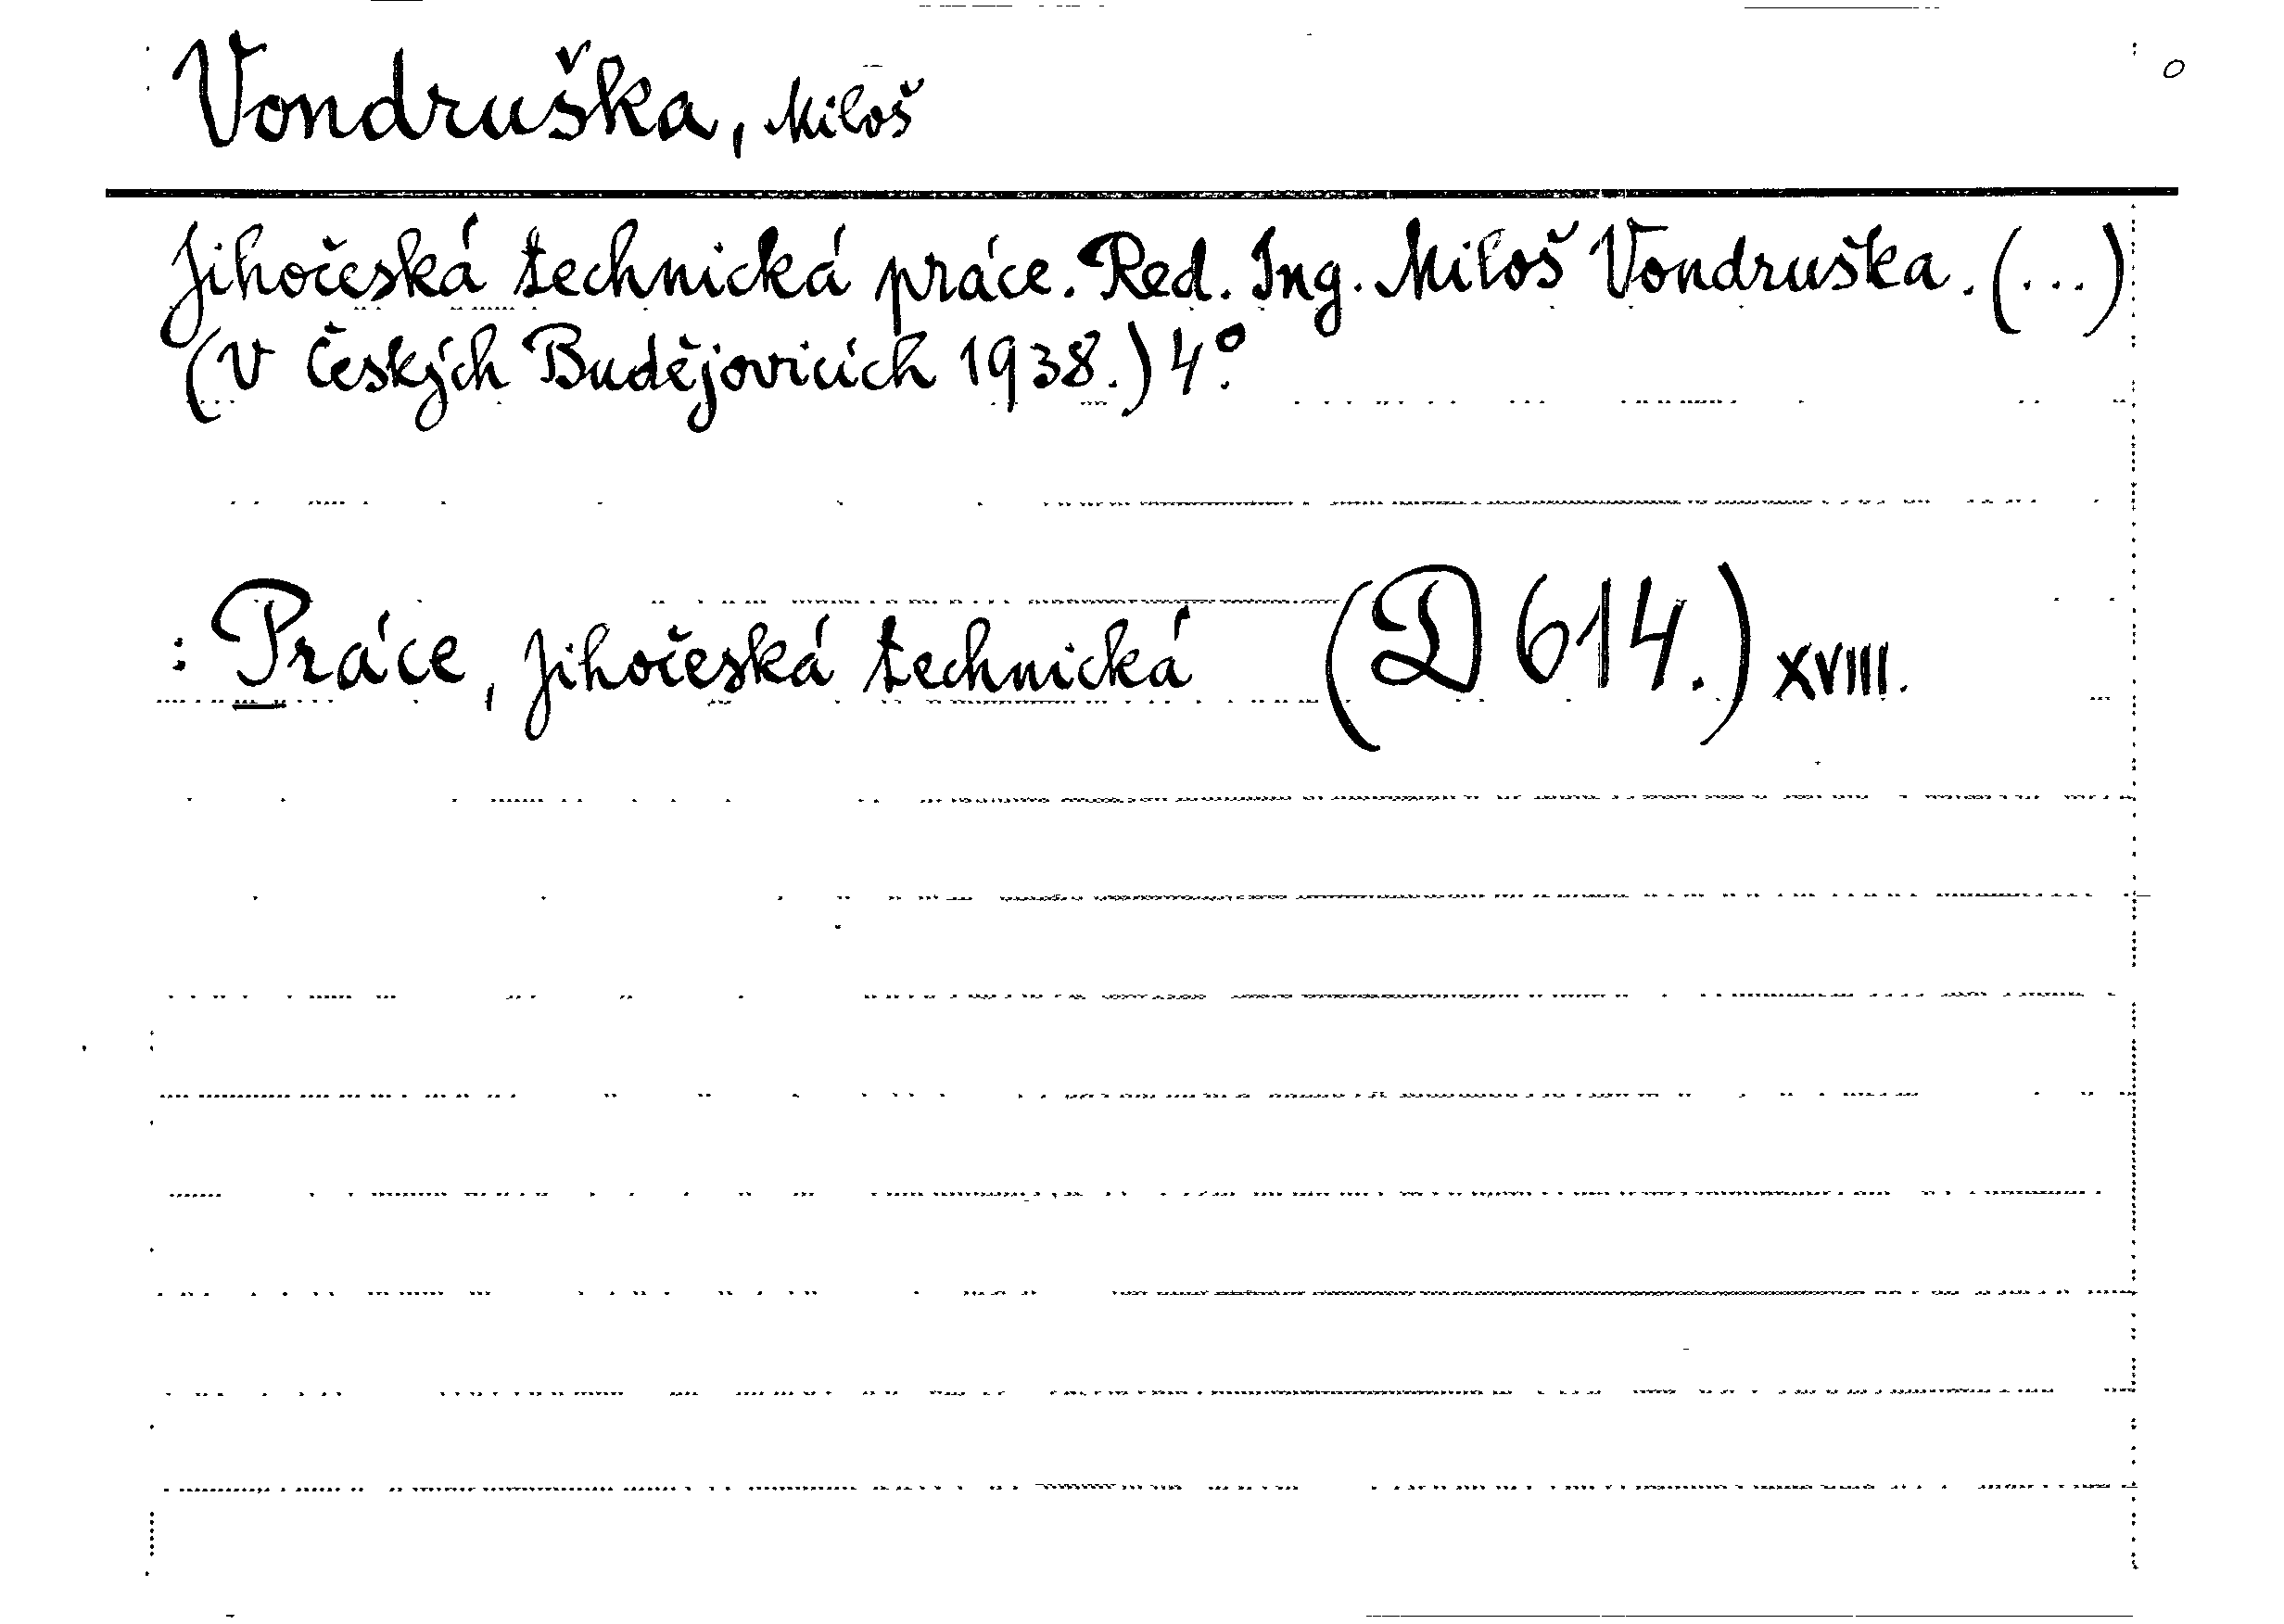 Vondruška, Miloš
Jihočeská technická práce. Red. Ing. Miloš Vondruška. (...)
(V Českých Budějovicích 1938.) 4°.
: Práce, Jihočeská technická (D 614.) XVIII.